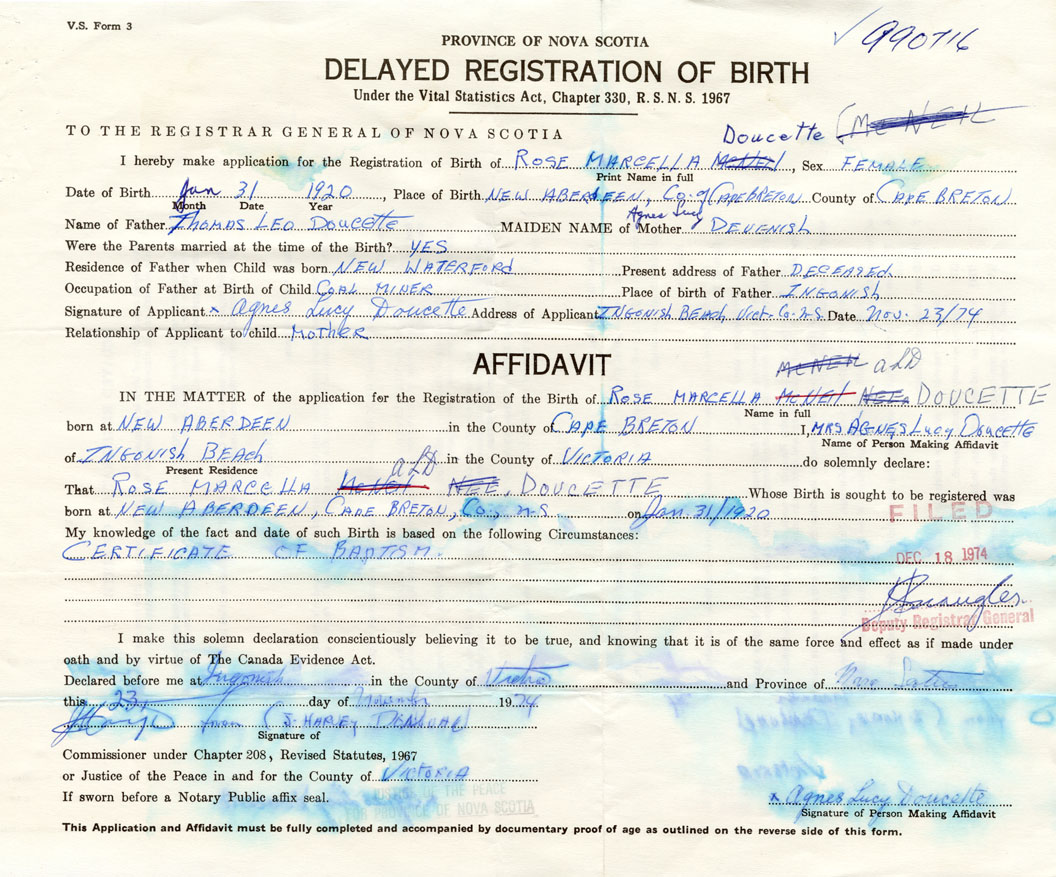 V.S. Form 3
990716
PROVINCE OF NOVA SCOTIA
DELAYED REGISTRATION OF BIRTH
Under the Vital Statistics Act, Chapter 330, R. S. N. S. 1967
TO THE REGISTRAR GENERAL OF NOVA SCOTIA
Doucette McNEIL
I hereby make application for the Registration of Birth of ROSE MARCELLA McNEIL, Sex FEMALE
Print Name in full
Date of Birth Jan 31 1920, Place of Birth NEW ABERDEEN, Co. of CAPE BRETON County of CAPE BRETON
Month Date Year
Agnes Lucy
Name of Father THOMAS LEO DOUCETTE MAIDEN NAME of Mother DEVENISH
Were the Parents married at the time of the Birth? YES
Residence of Father when Child was born NEW WATERFORD Present address of Father DECEASED
Occupation of Father at Birth of Child COAL MINER Place of birth of Father INGONISH
Signature of Applicant x Agnes Lucy Doucette Address of Applicant INGONISH BEACH, Vict. Co. N.S. Date Nov. 23/74
Relationship of Applicant to child MOTHER
AFFIDAVIT
McNEIL aLD
IN THE MATTER of the application for the Registration of the Birth of ROSE MARCELLA McNEIL NEE DOUCETTE
Name in full
born at NEW ABERDEEN in the County of CAPE BRETON I, MRS AGNES Lucy Doucette
Name of Person Making Affidavit
of INGONISH BEACH in the County of VICTORIA do solemnly declare:
Present Residence
aLD
That ROSE MARCELLA McNEIL NEE, DOUCETTE Whose Birth is sought to be registered was
born at NEW ABERDEEN, CAPE BRETON, Co., N.S. on Jan 31/1920
FILED
My knowledge of the fact and date of such Birth is based on the following Circumstances:
CERTIFICATE OF BAPTISM.
DEC 18 1974
Deputy Registrar General
I make this solemn declaration conscientiously believing it to be true, and knowing that it is of the same force and effect as if made under
oath and by virtue of The Canada Evidence Act.
Declared before me at Ingonish in the County of Victoria and Province of Nova Scotia
this 23 day of November 1974
Signature of
Commissioner under Chapter 208, Revised Statutes, 1967
or Justice of the Peace in and for the County of VICTORIA
JUSTICE OF THE PEACE
FOR PROVINCE OF NOVA SCOTIA
If sworn before a Notary Public affix seal.
x Agnes Lucy Doucette
Signature of Person Making Affidavit
This Application and Affidavit must be fully completed and accompanied by documentary proof of age as outlined on the reverse side of this form.